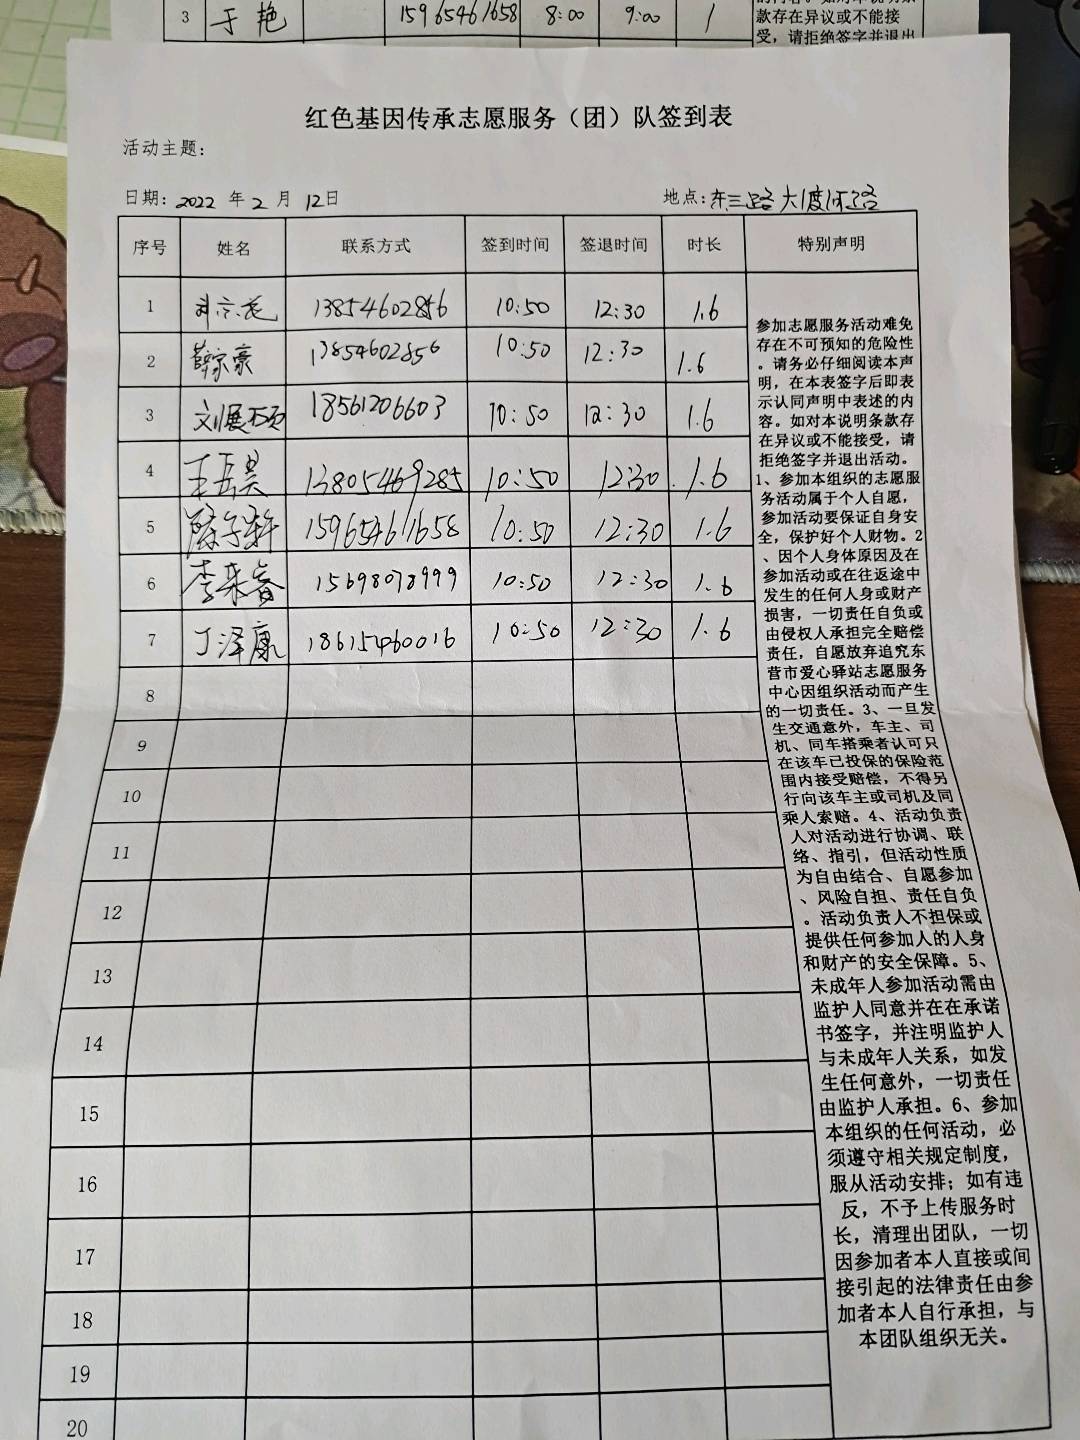 3 于艳 15965461658 8:00 9:00 1
款存在异议或不能接
受，请拒绝签字并退出
红色基因传承志愿服务（团）队签到表
活动主题：
日期：2022 年 2 月 12日 地点：东三路大渡河路
序号 姓名 联系方式 签到时间 签退时间 时长 特别声明
1 13854602856 10:50 12:30 1.6
2 薛家豪 13854602856 10:50 12:30 1.6
3 刘展硕 18561206603 10:50 12:30 1.6
4 王岳昊 13805469285 10:50 12:30 1.6
5 陈子轩 15965461658 10:50 12:30 1.6
6 李来睿 15698078999 10:50 12:30 1.6
7 丁泽康 18615460016 10:50 12:30 1.6
8
9
10
11
12
13
14
15
16
17
18
19
20
参加志愿服务活动难免
存在不可预知的危险性
。请务必仔细阅读本声
明，在本表签字后即表
示认同声明中表述的内
容。如对本说明条款存
在异议或不能接受，请
拒绝签字并退出活动。
1、参加本组织的志愿服
务活动属于个人自愿，
参加活动要保证自身安
全，保护好个人财物。2
、因个人身体原因及在
参加活动或在往返途中
发生的任何人身或财产
损害，一切责任自负或
由侵权人承担完全赔偿
责任，自愿放弃追究东
营市爱心驿站志愿服务
中心因组织活动而产生
的一切责任。3、一旦发
生交通意外，车主、司
机、同车搭乘者认可只
在该车已投保的保险范
围内接受赔偿，不得另
行向该车主或司机及同
乘人索赔。4、活动负责
人对活动进行协调、联
络、指引，但活动性质
为自由结合、自愿参加
、风险自担、责任自负
。活动负责人不担保或
提供任何参加人的人身
和财产的安全保障。5、
未成年人参加活动需由
监护人同意并在在承诺
书签字，并注明监护人
与未成年人关系，如发
生任何意外，一切责任
由监护人承担。6、参加
本组织的任何活动，必
须遵守相关规定制度，
服从活动安排；如有违
反，不予上传服务时
长，清理出团队，一切
因参加者本人直接或间
接引起的法律责任由参
加者本人自行承担，与
本团队组织无关。